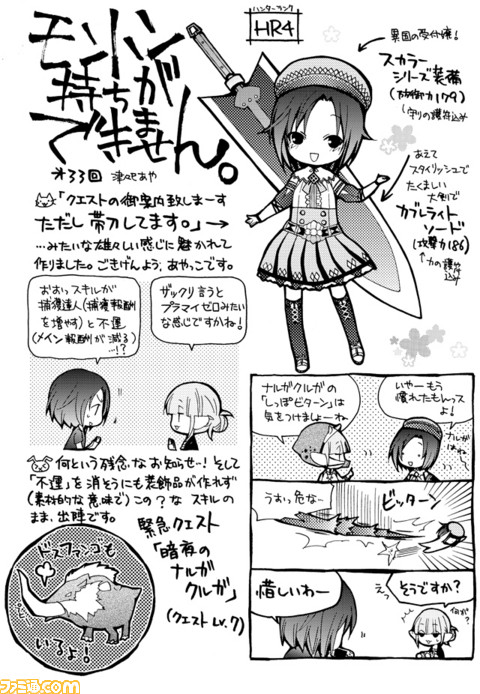 ハンターランク
HR4
モンハン
持ちが
できません。
オ33回 津々巳あや
異国の受付嬢！
スカラー
シリーズ装備
(防御力179)
(守りの護符込み)
あえて
スタイリッシュで
たくましい
大剣で
カブレライト
ソード
(攻撃力186)
力の護符
込み
「クエストの御案内致しまーす
ただし帯刀してます。」→
…みたいな雄々しい感じに魅かれて
作りました。ごきげんよう、あやっこです。
おおっスキルが
捕獲達人(捕獲報酬
を増やす)と不運
(メイン報酬が減る)
…!?
ザックリ言うと
プラマイゼロみたい
な感じですかね！
何という残念なお知らせ…！そして
「不運」を消そうにも装飾品が作れず
(素材的な意味で)この？なスキルの
まま、出陣です。
緊急クエスト
「暗夜の
ナルガ
クルガ」
(クエストLv.7)
ドスファンゴも
いるよ！
いやーもう
慣れたもんっス
よ！
ナルガ
はね
ナルガクルガの
「しっぽビターン」は
気をつけましょーね
うおっ危な…
ビッターン
惜しいわー
えっ
そうですか？
何が？
ファミ通.com